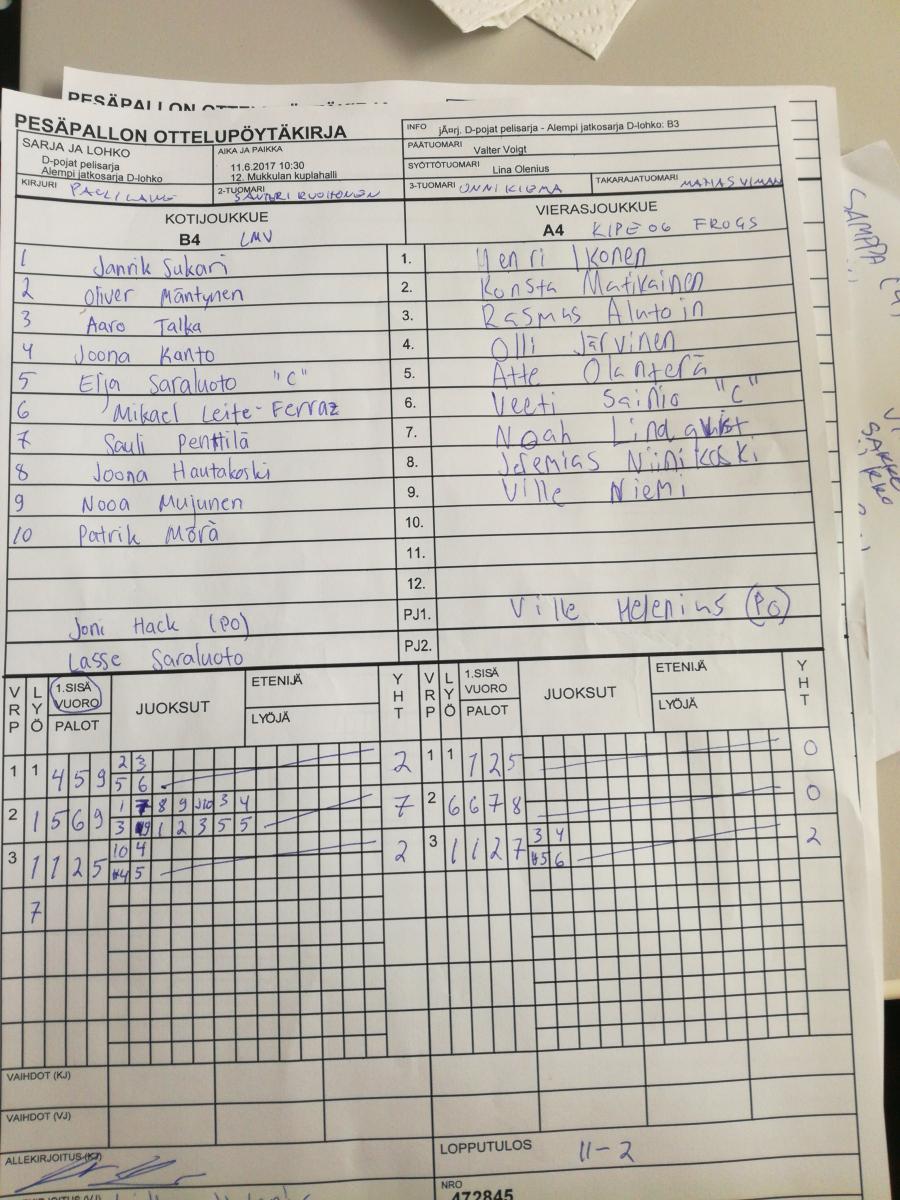 PESÄPALLON OTTELUPÖYTÄKIRJA
SARJA JA LOHKO
D-pojat pelisarja
Alempi jatkosarja D-lohko
AIKA JA PAIKKA
11.6.2017 10:30
12. Mukkulan kuplahalli
INFO järj. D-pojat pelisarja - Alempi jatkosarja D-lohko: B3
PÄÄTUOMARI Valter Voigt
SYÖTTÖTUOMARI Lina Olenius
KIRJURI PAULI LAINE
2-TUOMARI SANTERI RUOHONEN
3-TUOMARI ONNI KIEMA
TAKARAJATUOMARI
KOTIJOUKKUE
B4 LMV
VIERASJOUKKUE
A4 KIPE 06 FROGS
1 Janrik Sukari 1. Henri Ikonen
2 Oliver Mäntynen 2. Konsta Matikainen
3 Aaro Talka 3. Rasmus
4 Joona Kanto 4. Olli Järvinen
5 Erja Saraluoto "C" 5. Atte Olanterä
6 Mikael Leite-Ferraz 6. Veeti Sainio "C"
7 Sauli Penttilä 7. Noah Lindqvist
8 Joona Hautakoski 8. Jeremias Niinikoski
9 Nooa Mujunen 9. Ville Niemi
10 Patrik Mörä 10.
11.
12.
Joni Hack (PO) PJ1. Ville Helenius (PO)
Lasse Saraluoto PJ2.
VRP LYÖ 1.SISÄ VUORO PALOT JUOKSUT ETENIJÄ LYÖJÄ YHT VRP LYÖ 1.SISÄ VUORO PALOT JUOKSUT ETENIJÄ LYÖJÄ YHT
2 3
1 1 4 5 9 5 6 2 1 1 1 2 5 0
1 7 8 9 10 3 4
2 1 5 6 9 3 9 1 2 3 5 5 7 2 6 6 7 8 0
10 4 3 4
3 1 1 2 5 4 5 2 3 1 1 2 7 5 6 2
7
VAIHDOT (KJ)
VAIHDOT (VJ)
ALLEKIRJOITUS (KJ)
LOPPUTULOS 11-2
NRO
472845